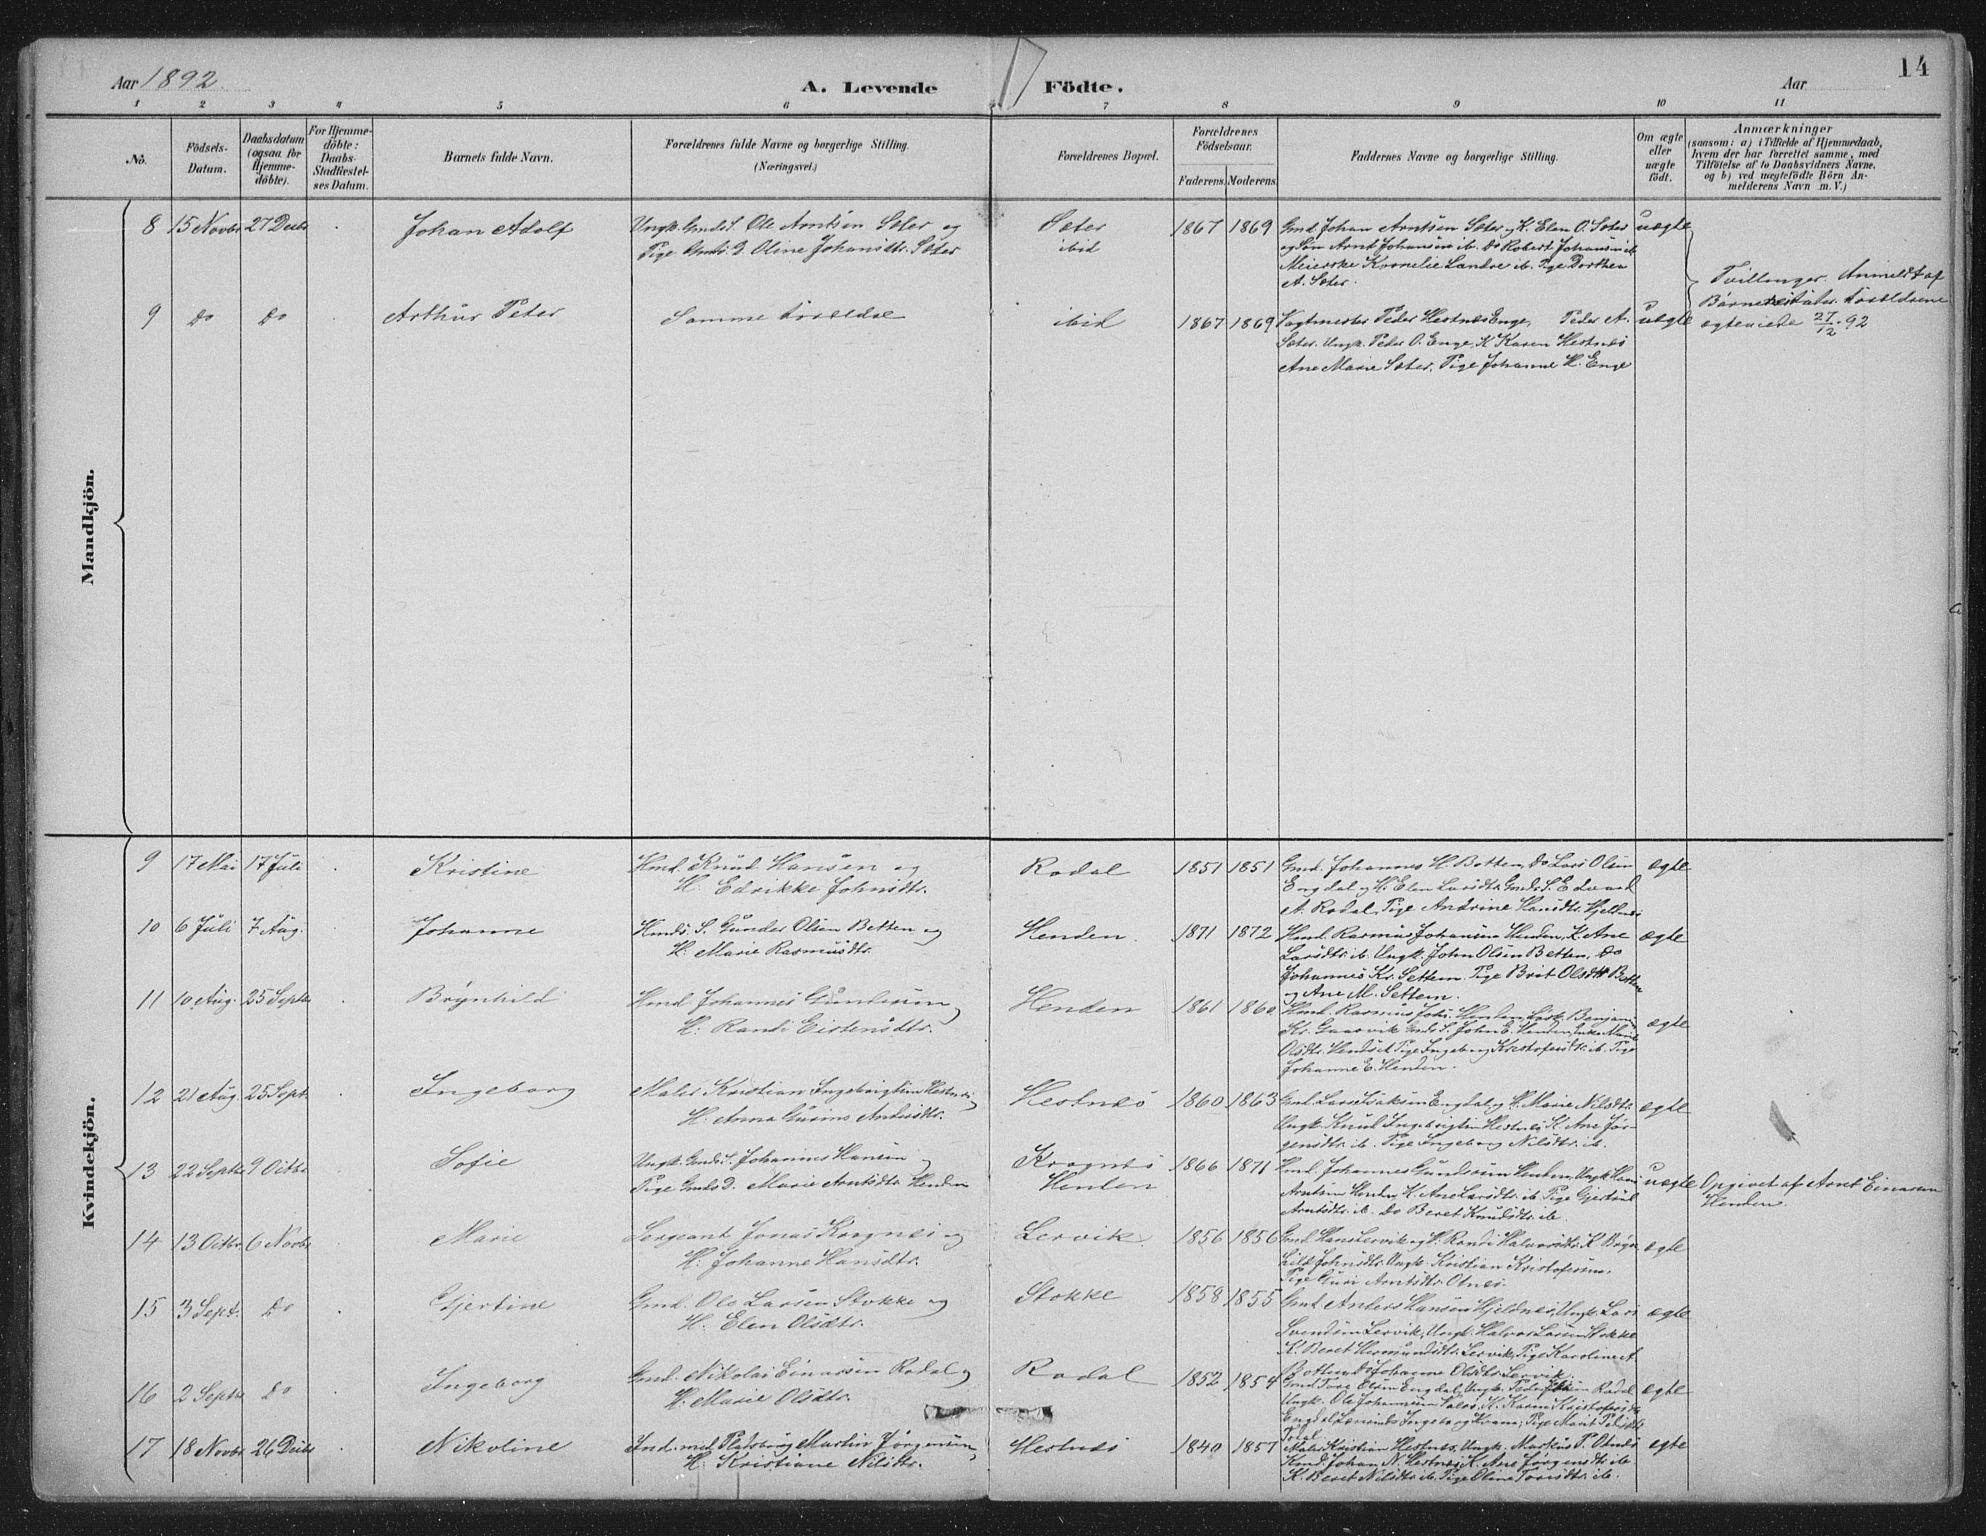 Aar 1892.
A. Levende Födte.
Aar
14
1 2 3 4 5 6 7 8 9 10 11
No.
Födsels-Datum.
Daabsdatum (ogsaa for Hjemme-döbte).
For Hjemme-döbte: Daabs-Stadfæstel-ses Datum.
Barnets fulde Navn.
Forældrenes fulde Navne og borgerlige Stilling. (Næringsvei.)
Forældrenes Bopæl.
Forældrenes Födselsaar.
Faderens. Moderens.
Faddernes Navne og borgerlige Stilling.
Om ægte eller uægte födt.
Anmærkninger
(saasom: a) i Tilfælde af Hjemmedaab, hvem der har forrettet samme, med Tilföielse af to Daabsvidners Navne. og b) ved uægtefödte Börn An-melderens Navn m. V.)
Mandkjön.
8 15 Novbr 27 Decbr Johan Adolf
Ungk. Gmds. S. Ole Arntsen Sæter og
Pige Gmds. D. Oline Johansdtr. Sæter
Sæter
ibid
1867 1869
Gmd Johan Arntsen Sæter og K. Elen O. Sæter
og Søn Arnt Johansen ib. Do Robert Johansen ib.
Meierske Kornelie Landre ib. Pige Dorthea
A. Sæter.
uægte
Tvillinger. Anmeldt af
Barnets Fader. Forældrene
ægteviede 27/12 92
9 Do Do Arthur Peter
Samme Forældre
ibid
1867 1869
Vagtmester Peder Hestnes Enge, Peder A.
Sæter. Ungk. Peder O. Enge, K Karen Hestnes
Ane Marie Sæter, Pige Johanne H. Enge
uægte
Kvindekjön.
9 17 Mai 17 Juli Kristine
Hmd. Knud Hansen og
H. Edrikke Johnsdtr.
Rodal
1851 1851
Gmd. Johannes H. Botten, Do Lars Olsen
Engdal og H. Elen Larsdtr. Gmds. S. Edvard
A. Rodal, Pige Andrine Hansdtr. Hjellnes
ægte
10 6 Juli 7 Aug. Johanne
Hmds. S. Gunder Olsen Betten og
H. Marie Rasmusdtr.
Henden.
1871 1872
Hmd. Rasmus Johansen Henden, K. Ane
Larsdtr. ib. Ungk. John Olsen Betten, Do
Johannes Kr. Settem. Pige Brit Olsdtr Betten
og Ane M. Settem.
ægte
11 10 Aug. 25 Septr Brynhild
Hmd. Johannes Gundersen og
H. Randi Eistensdtr.
Henden
1861 1860
Hmd. Rasmus Johs. Henden, Benjam.
Kr. Gaasvik Gmds. S. John E. Henden, Enke Marit
Olsdtr. Hendset Pige Ingeborg Kristofersdtr. ib. Pige
Johanne E. Henden.
ægte
12 21 Aug. 25 Sept. Ingeborg
Maler Kristian Ingebrigtsen Hestnes og
H. Anna Andrisdtr.
Hestnes
1860 1863
Gmd. Lars Engdal og H. Marie Nilsdtr.
Ungk. Knud Ingebrigtsen Hestnes, K. Ane Jør-
gensdtr. ib. Pige Ingeborg Nilsdtr. ib.
ægte
13 22 Septbr 9 Octbr Sofie
Ungk. Gmds. S. Johannes Hansen og
Pige Gmds D. Marie Arntsdtr. Henden
Krognes
Henden
1866 1871
Hmd. Johannes Gundersen Henden, Ungk. Hans
Arntsen Henden, K. Ane Larsdtr. ib. Pige Gjertrud
Arntsdtr. ib. Do Beret Knudsdtr. ib.
uægte
Opgivet af Arnt Einarsen
Henden.
14 13 Octbr. 6 Novbr Marie
Sergeant Jonas Krognes og
H. Johanne Hansdtr.
Lervik.
1856 1856
Gmd. Hans Lervik og H. Randi Halvorsdtr. K. Bryn-
hild Johnsdtr. Ungk. Kristian Kristofersen.
Pige Guri Arntsdtr. Otnes.
ægte
15 3 Sept. Do Gjertine
Gmd. Ole Larsen Stokke og
H. Elen Olsdtr.
Stokke
1858 1855
Gmd. Anders Hansen Hjeldnes, Ungk. Lars
Svendsen Lervik, Ungk. Halvor Larsen Stokke
K. Beret Hermundsdtr. Lervik, Pige Karoline
Botten, Do Johanne Olsdtr. Lervik
ægte
16 2 Septr Do Ingeborg
Gmd. Nikolai Einarsen Rodal og
H. Marie Olsdtr.
Rodal
1852 1854
Gmd. Tore Olsen Engdal, Ungk. Peder Rodal
Ungk. Ole Johannsen K. Karen Kristofersdtr.
Engdal Ingeborg Pige Marit Pedersdtr
ægte
17 18 Novbr 26 Decbr Nikoline
Ind. med Pladsbrug Martin Jørgensen og
H. Kristiane Nilsdtr.
Hestnes
1840 1857
Maler Kristian Hestnes, Ungk. Markus P. Otnes
Kmd. Johan N. Hestnes, K. Ane Jørgensdtr. ib
K. Beret Nilsdtr ib. Pige Oline Toresdtr. ib.
ægte